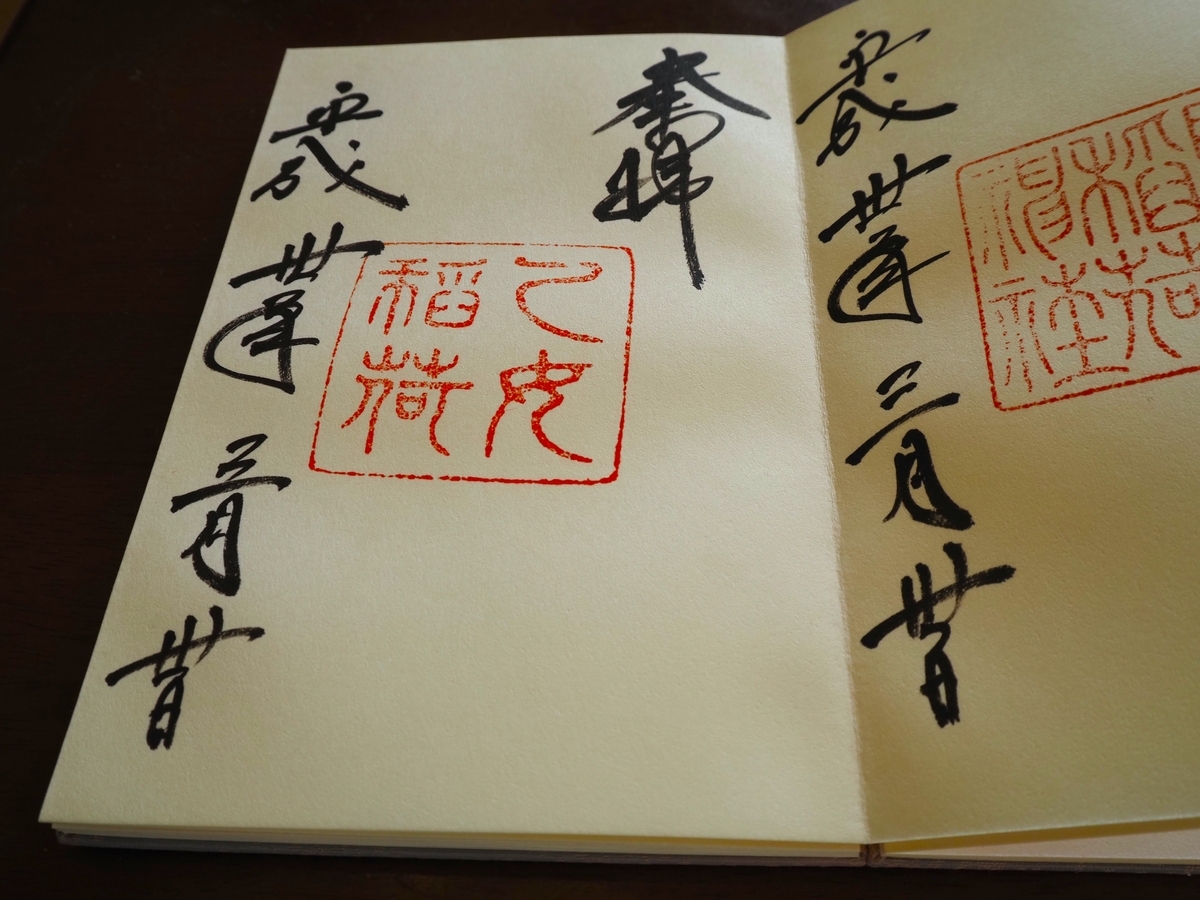 稲荷
神社
平成卅年三月卅日
奉拝
乙女
稲荷
平成卅年三月卅日